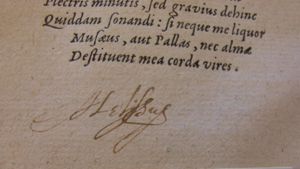 Plectris minutis, sed gravius dehinc
Quiddam sonandi: si neque me liquor
Musæus, aut Pallas, nec almæ
Destituent mea corda vires.